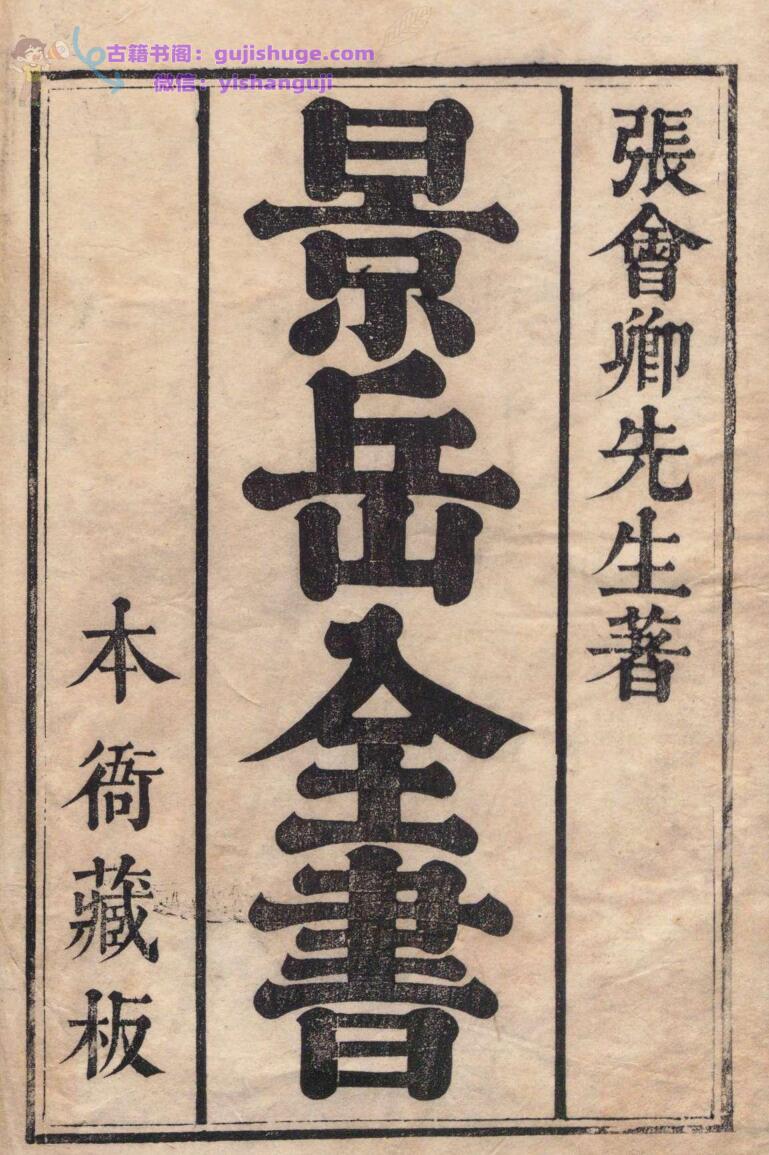 古籍书阁：gujishuge.com
微信：yishanguji
張會卿先生著
景岳全書
本衙藏板